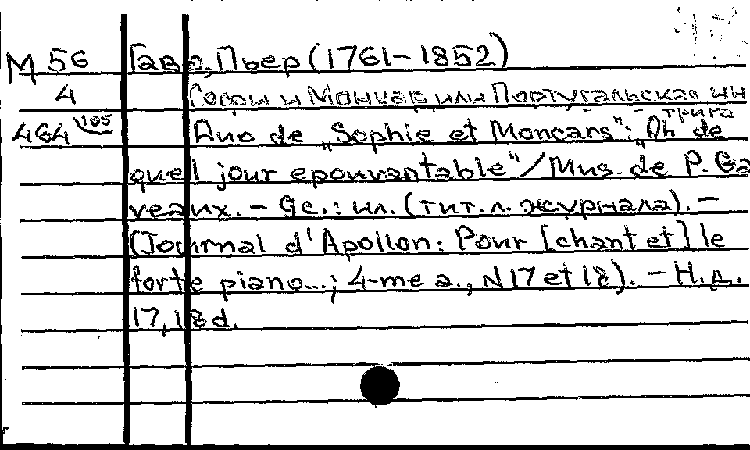 М 56 Гаво, Пьер (1761-1852)
4 Софи и Монкар или Португальская ин
трига
464 Duo de „Sophie et Moncars“: „Oh de
quel jour epouvantable“ / Mus. de P. Ga
veaux. - 9с.: ил. (тит. л. журнала). -
(Journal d'Apollon: Pour [chant et] le
forte piano...; 4-me a., N17 et 18). - Н.д.
17, 18 d.